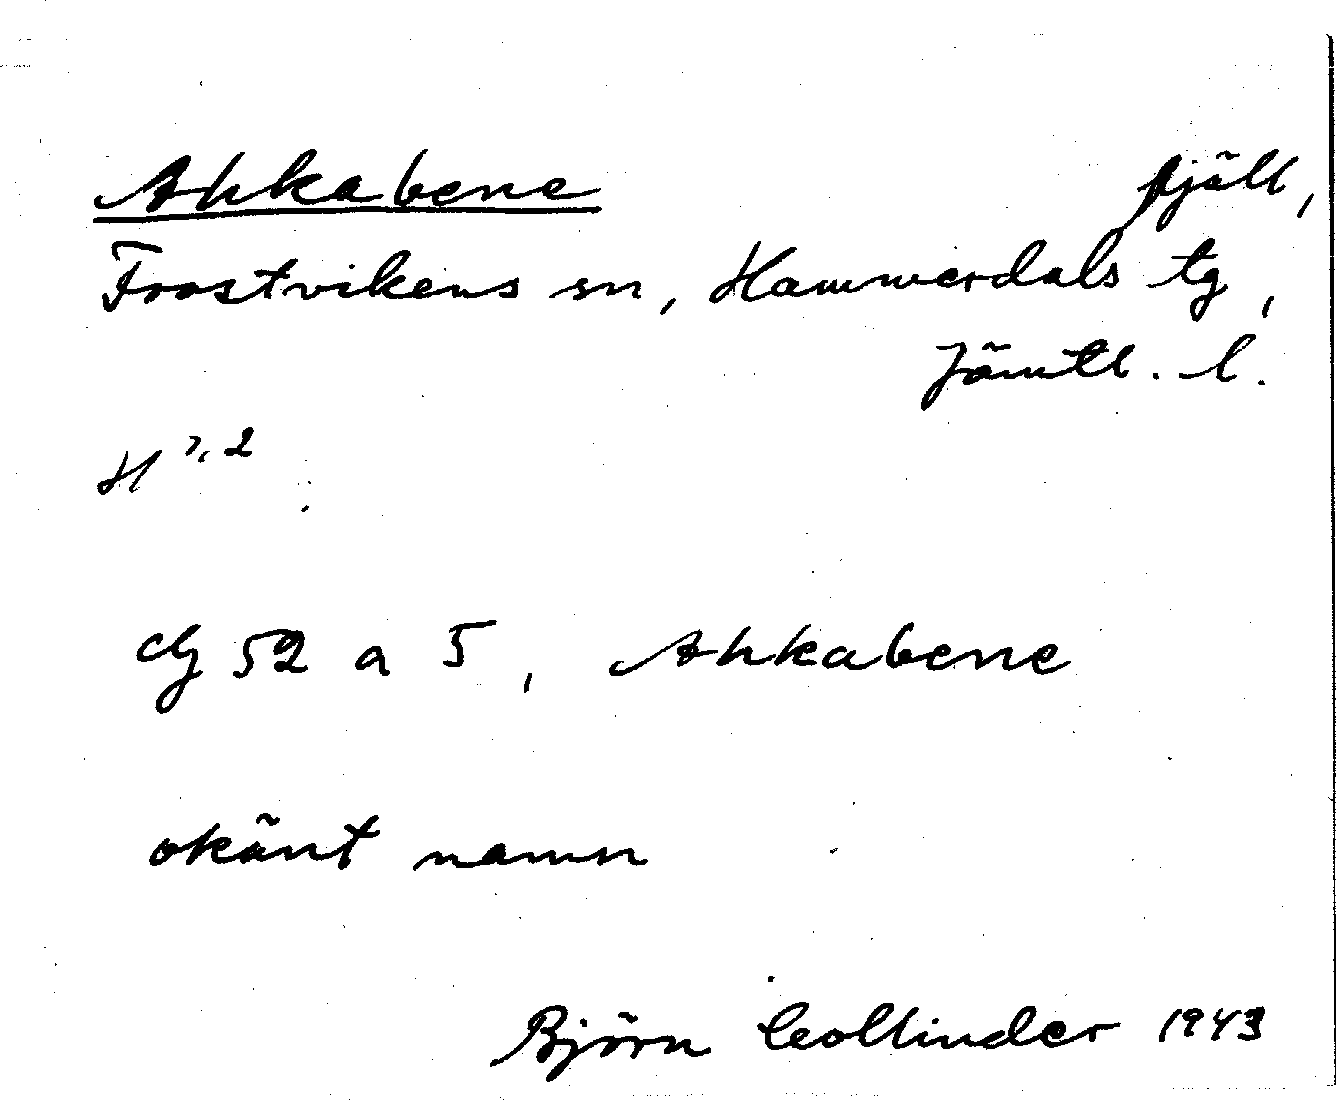 Ahkabene fjäll,
Frostvikens sn, Hammerdals tg,
Jämtl. l.
cg 52 a 5, Ahkabene
okänt namn
Björn Collinder 1943